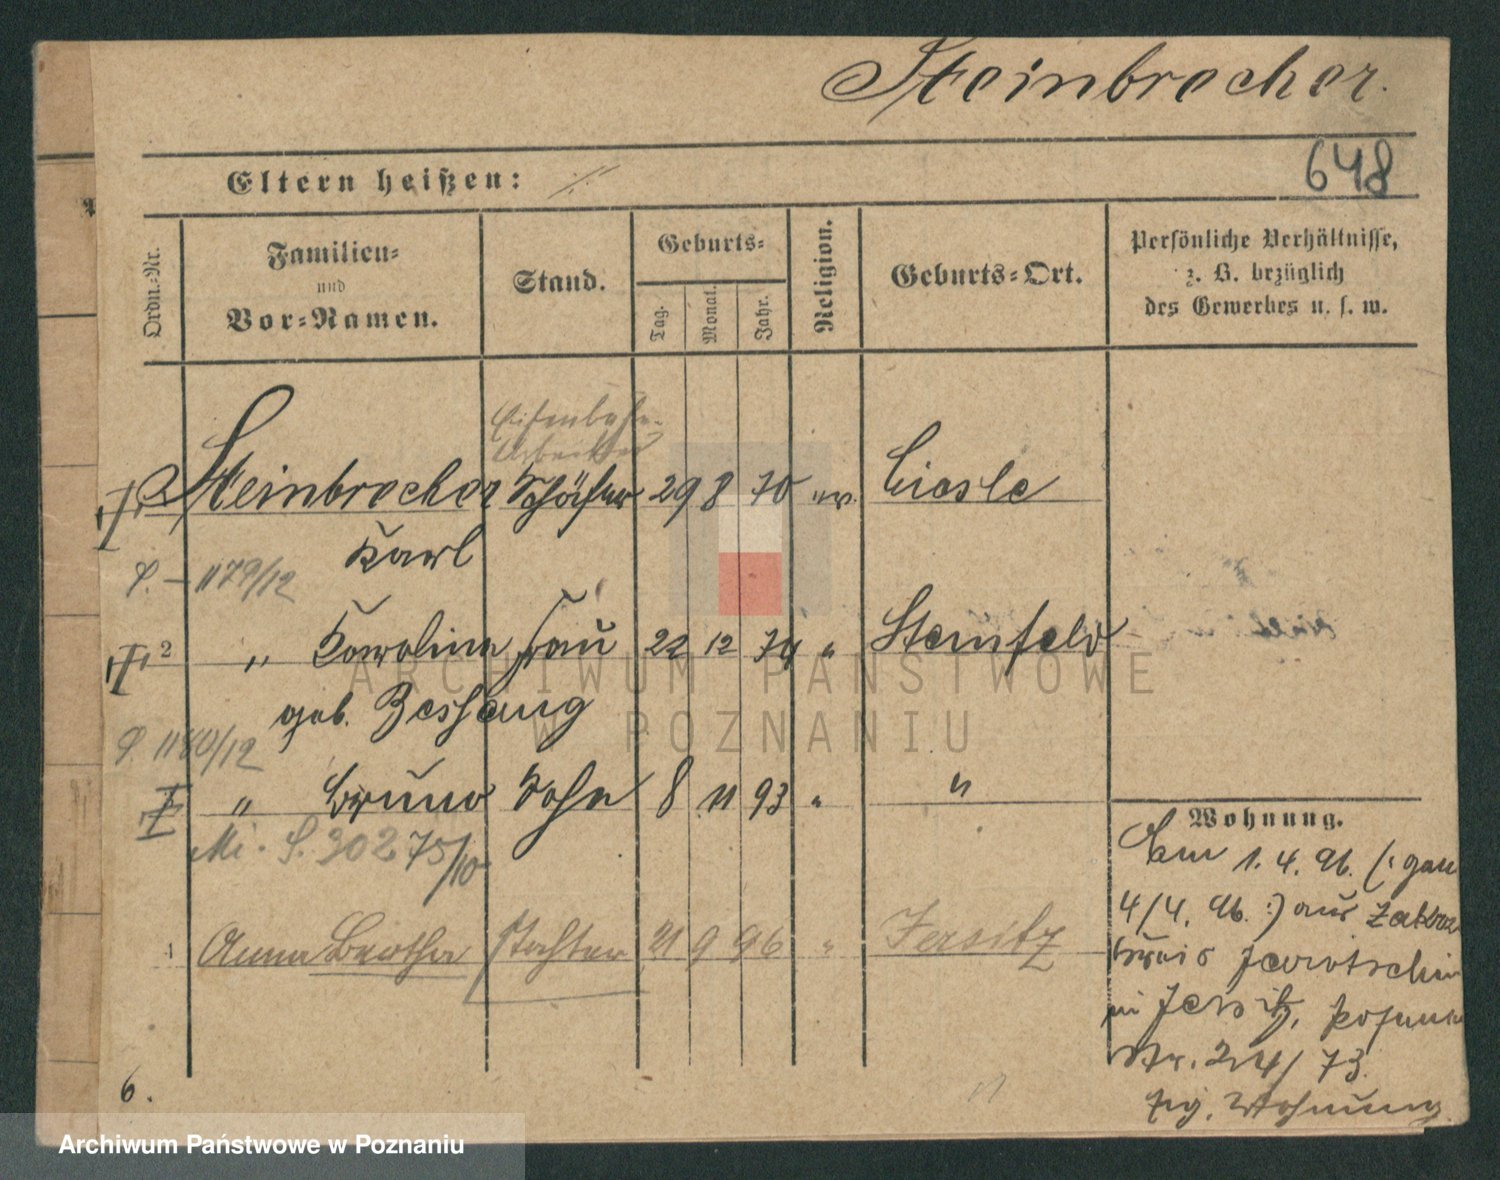 Steinbrecher.
648
Eltern heißen: ·/·
Ordn.-Nr.
Familien-
und
Vor-Namen.
Stand.
Geburts-
Tag.
Monat.
Jahr.
Religion.
Geburts-Ort.
Persönliche Verhältnisse,
z. B. bezüglich
des Gewerbes u. s. w.
Eisenbahn-
Arbeiter
Steinbrecher 29 8 70 ev. Ciesle
Karl
1179/12
2 " Karoline Frau 22 12 74 " Sternfeld
geb.
1180/12
" Bruno Sohn 8 11 93 " "
75/10
Anna Bertha Tochter 21 9 96 " Jersitz
Wohnung.
Am 1. 4. 96. (: gem
4/4. 96. :) aus
Kreis Jarotschin
in Jersitz, Posener
Str. 24/73.
Wohnung
6.
ARCHIWUM PAŃSTWOWE
W POZNANIU
Archiwum Państwowe w Poznaniu